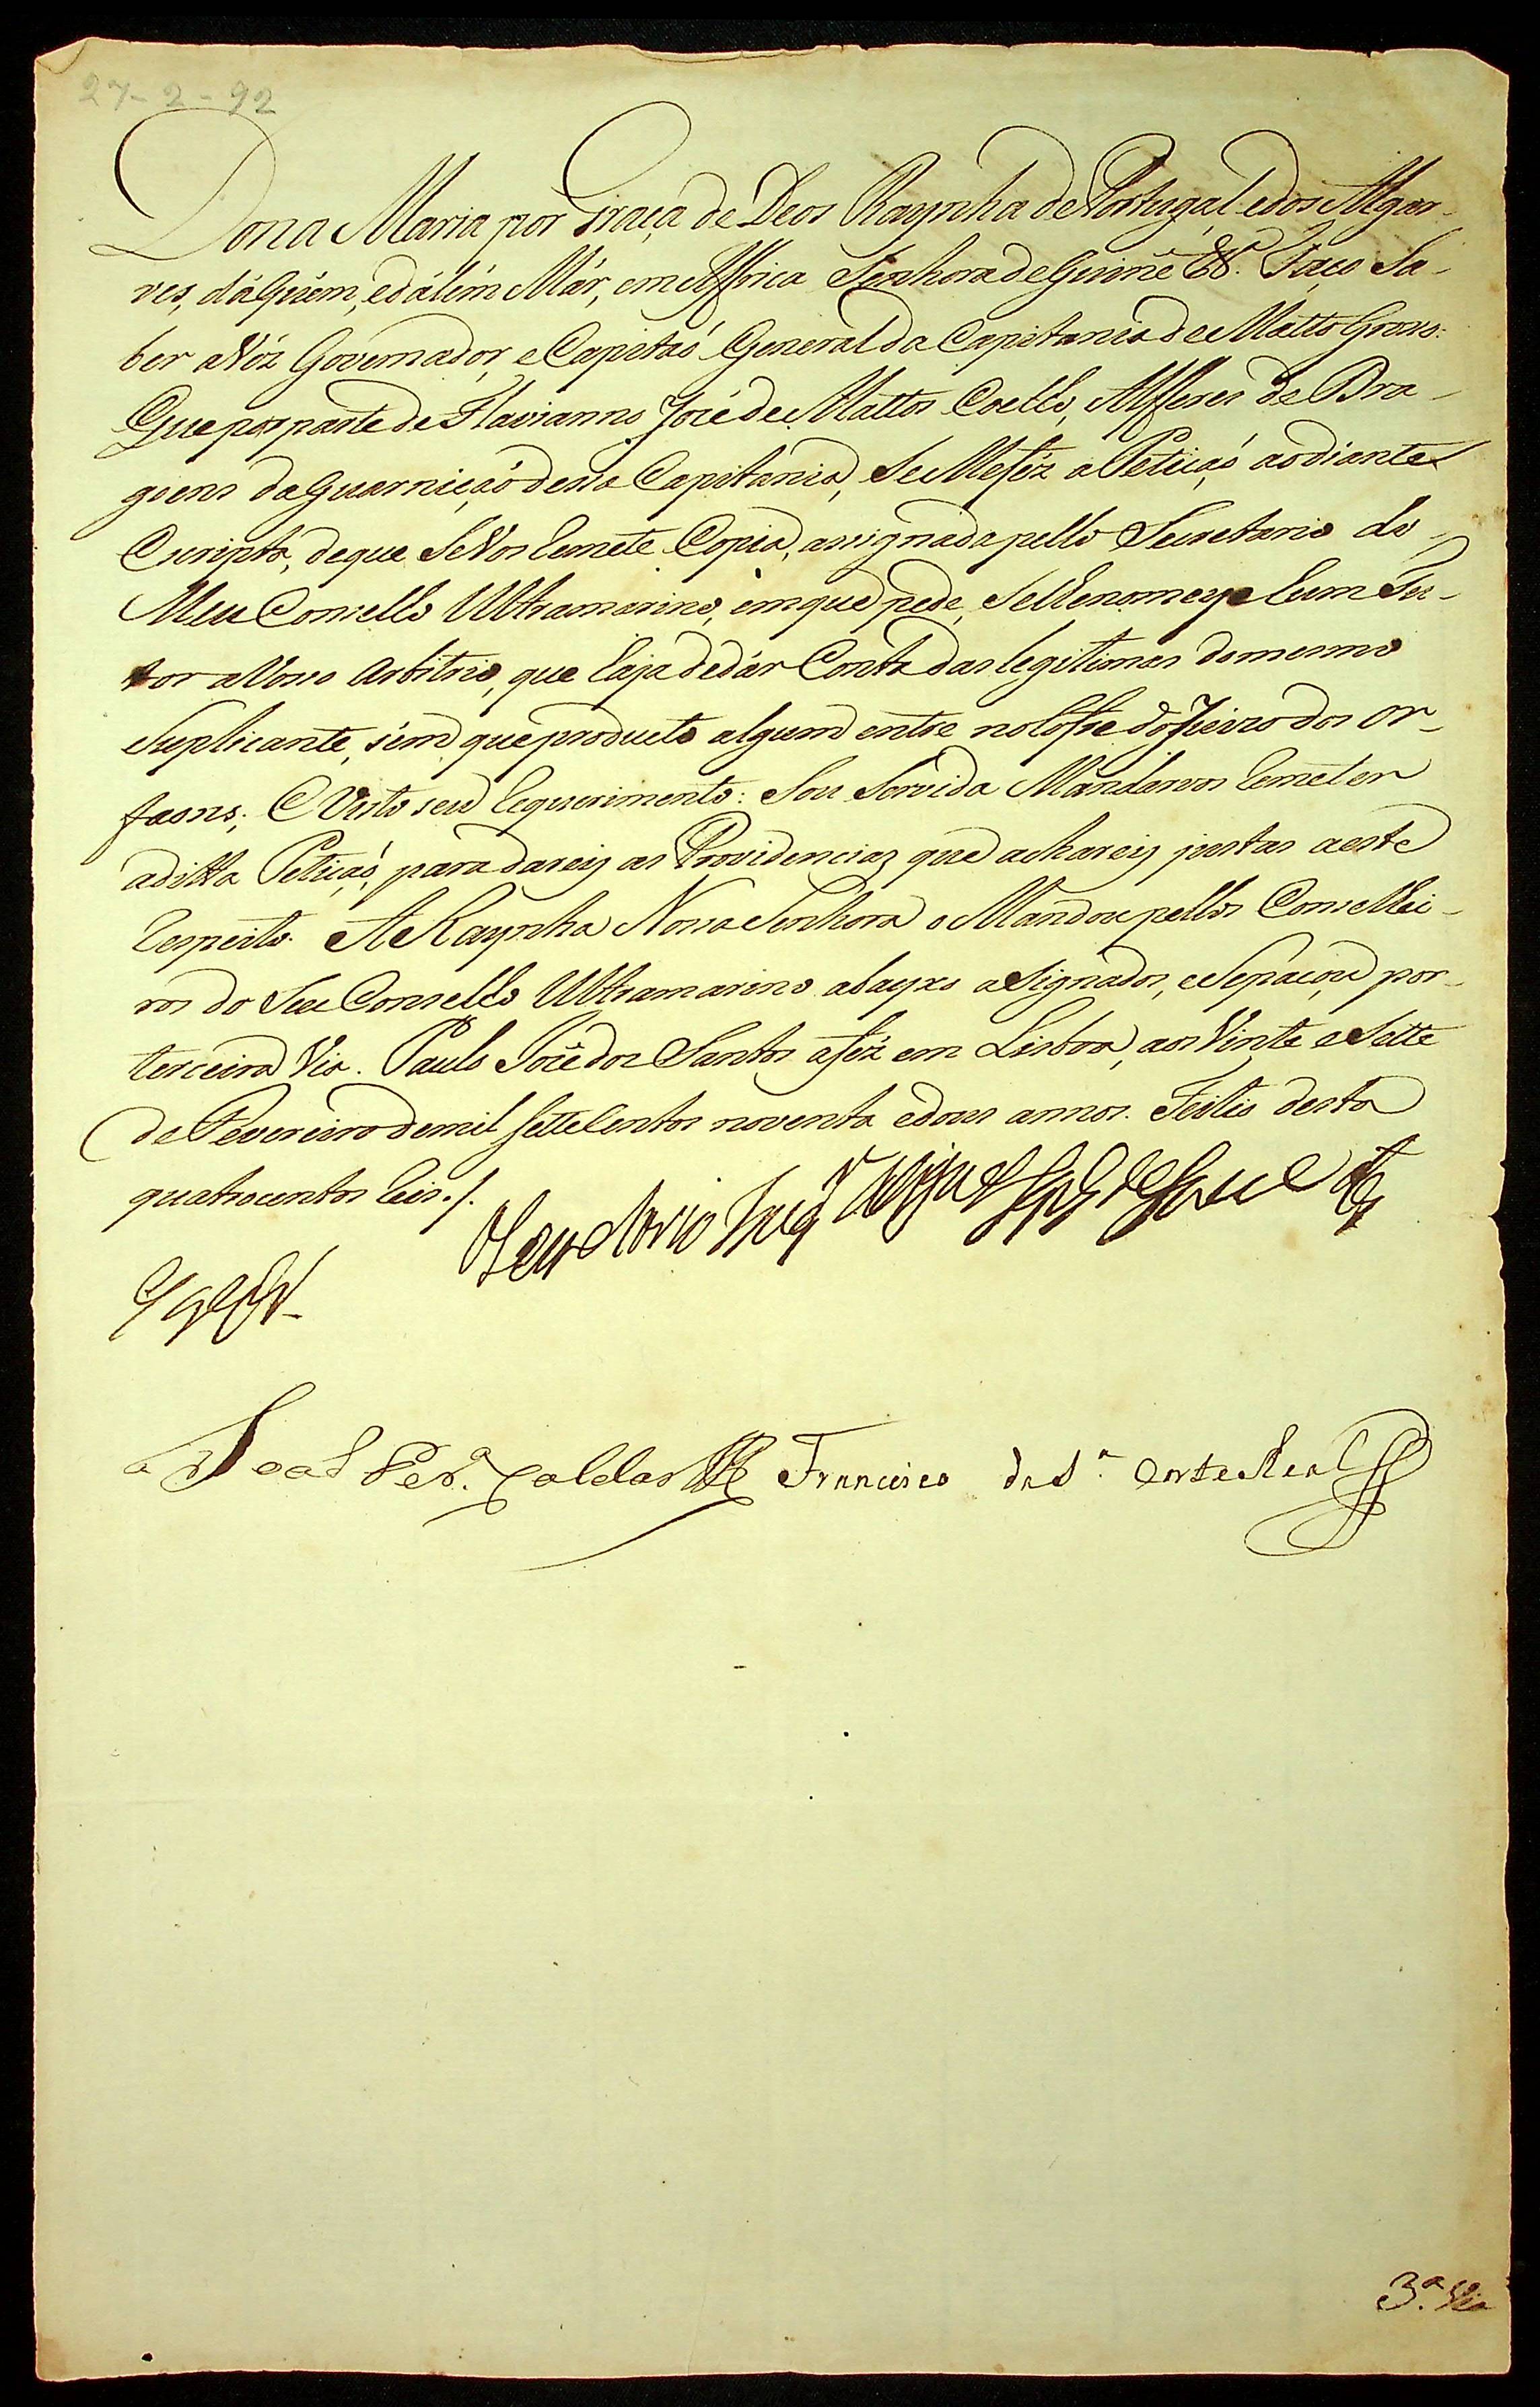 27-2-92
Dona Maria por Graça de Deos Raynha de Portugal e dos Algar-
ves, dáquém, e dálém Már, em Affrica Senhora de Guiné &ª. Faço Sa-
ber a Vós Governador, e Capitaó General da Capitania de Matto Grosso:
Que por parte de Flavianno José de Mattos Coelho, Alferes de Dra-
goens da Guarniçaó dessa Capitania, Se Me fez a Petiçaó ao diante
Escripta, de que Se Vos remete Copia, assignada pello Secretario do
Meu Conselho Ultramarino, em que pede, Se lhe nomeye hum Tu-
tor a Vosso Arbitrio, que haja de dár Conta das legitimas do mesmo
Suplicante, sem que producto algum entre no Cofre do Juizo dos Or-
faons; E Visto seu requerimento: Sou Servida Mandarvos remeter
a ditta Petiçaó, para dareis as Providencias que achareis justas a este
respeito. A Raynha Nossa Senhora o Mandou pellos Conselhei-
ros do Seu Conselho Ultramarino abayxo aSignados, e Se paçou por
terceira Via. Paulo José dos Santos a fez em Lisboa, aos Vinte e Sette
de Fevereiro de mil Sette Centos noventa e dous annos. Feitio desta
quatrocentos reis./.
Joaõ Perª. Caldas Francisco da Sª. Corte Real
3ª. Via